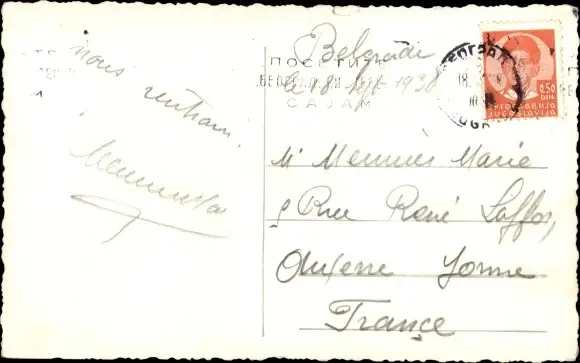 nous rentrons.
Belgrade
le 18 1938
ПОСЕТИТЕ
БЕОГРАДСКИ
САЈАМ
БЕОГРАД
18.
0.50
DIN.
ЈУГОСЛАВИЈА
JUGOSLAVIJA
Mr Meunier Marie
9 Rue René Laffon
Auxerre Yonne
France